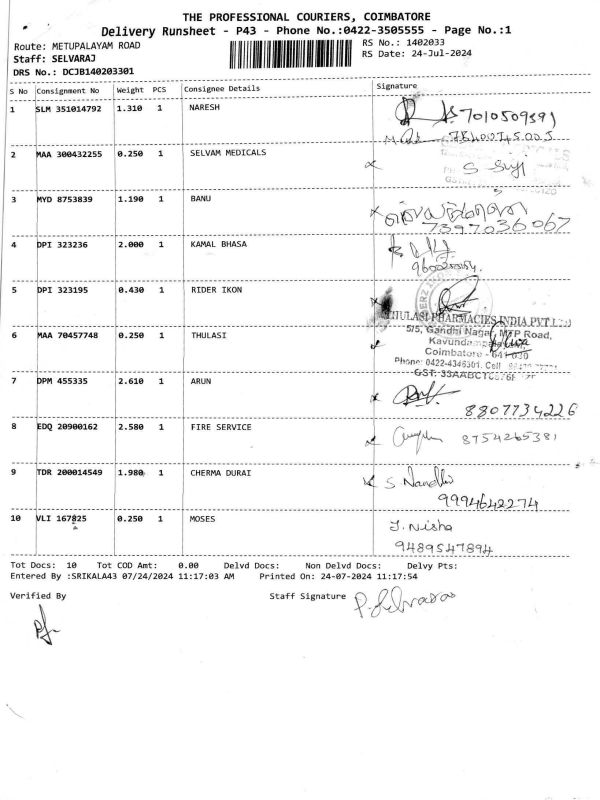 THE PROFESSIONAL COURIERS, COIMBATORE
Delivery Runsheet - P43 - Phone No.:0422-3505555 - Page No.:1
Route: METUPALAYAM ROAD
RS No.: 1402033
Staff: SELVARAJ
RS Date: 24-Jul-2024
DRS No.: DCJB140203301
S No Consignment No Weight PCS Consignee Details Signature
1 SLM 351014792 1.310 1 NARESH
7010509391
2 MAA 300432255 0.250 1 SELVAM MEDICALS
3 MYD 8753839 1.190 1 BANU
7397036067
4 DPI 323236 2.000 1 KAMAL BHASA
5 DPI 323195 0.430 1 RIDER IKON
THULASI PHARMACIES INDIA PVT LTD
5/5, Gandhi Nagar, MTP Road,
6 MAA 70457748 0.250 1 THULASI
Kavundampalayam,
Coimbatore - 641 030
Phone: 0422-4346301, Cell
7 DPM 455335 2.610 1 ARUN
8807734226
8 EDQ 20900162 2.580 1 FIRE SERVICE
8754265381
9 TDR 200014549 1.980 1 CHERMA DURAI
S Nandhi
9994642274
10 VLI 167825 0.250 1 MOSES
J. Nisha
9489547894
Tot Docs: 10 Tot COD Amt: 0.00 Delvd Docs: Non Delvd Docs: Delvy Pts:
Entered By :SRIKALA43 07/24/2024 11:17:03 AM Printed On: 24-07-2024 11:17:54
Verified By
Staff Signature P. Selvaraj